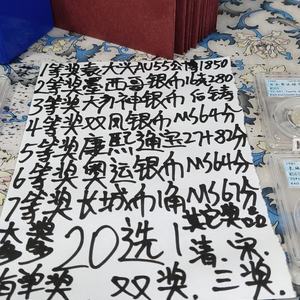 1等奖袁大头AU55公博1850
2等奖墨西哥银币16戋280
3等奖大力神银币后铸
4等奖双凤银币MS64分
5等奖康熙通宝27+82分
6等奖奥运银币MS64分
7等奖长城币1角MS67分
20选1
双奖.三奖.